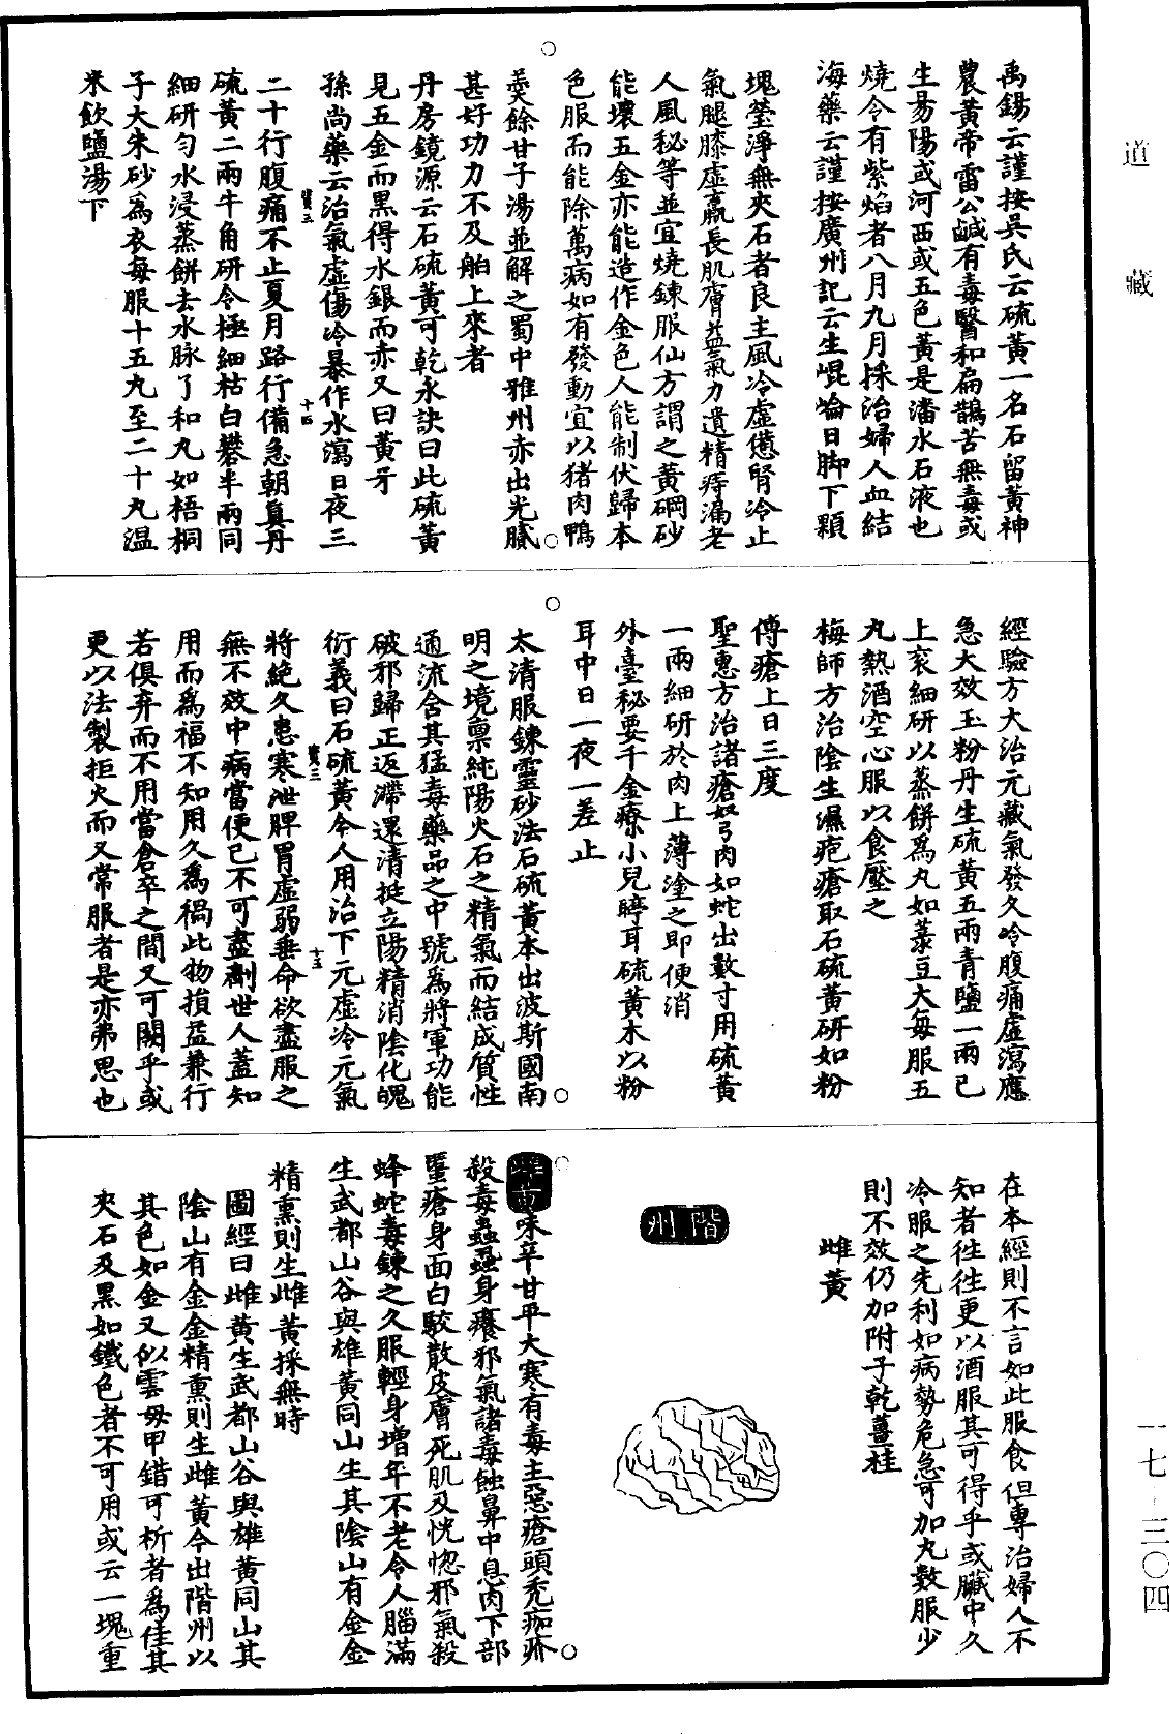 道藏
禹錫云謹按吳氏云硫黃一名石留黃神
農黃帝雷公鹹有毒醫和扁鵲苦無毒或
生易陽或河西或五色黃是潘水石液也
燒令有紫焰者八月九月採治婦人血結
海藥云謹按廣州記云生崐崘日脚下顆
塊瑩淨無夾石者良主風冷虛憊腎冷止
氣腿膝虛羸長肌膚益氣力遺精痔漏老
人風秘等並宜燒鍊服仙方謂之黃硇砂
能壞五金亦能造作金色人能制伏歸本
色服而能除萬病如有發動宜以猪肉鴨
羹餘甘子湯並解之蜀中雅州亦出光膩
甚好功力不及舶上來者
丹房鏡源云石硫黃可乾永訣曰此硫黃
見五金而黑得水銀而赤又曰黃牙
孫尚藥云治氣虛傷冷暴作水瀉日夜三
二十行腹痛不止夏月路行備急朝真丹
硫黃二兩牛角研令極細枯白礬半兩同
細研勻水浸蒸餅去水脉了和丸如梧桐
子大朱砂為衣每服十五丸至二十丸溫
米飲鹽湯下
十四
經驗方大治元藏氣發久冷腹痛虛瀉應
急大效玉粉丹生硫黃五兩青鹽一兩已
上衮細研以蒸餅為丸如菉豆大每服五
丸熱酒空心服以食壓之
梅師方治陰生濕疱瘡取石硫黃研如粉
傅瘡上日三度
聖惠方治諸瘡弩肉如蛇出數寸用硫黃
一兩細研於肉上薄塗之即便消
外臺秘要千金療小兒聤耳硫黃末以粉
耳中日一夜一差止
太清服鍊靈砂法石硫黃本出波斯國南
明之境禀純陽火石之精氣而結成質性
通流含其猛毒藥品之中號為將軍功能
破邪歸正返滯還清挺立陽精消陰化魄
衍義曰石硫黃今人用治下元虛冷元氣
將絶久患寒泄脾胃虛弱垂命欲盡服之
無不效中病當便已不可盡劑世人蓋知
用而為福不知用久為禍此物損益兼行
若俱弃而不用當倉卒之間又可闕乎或
更以法製拒火而又常服者是亦弗思也
十五
在本經則不言如此服食但專治婦人不
知者往往更以酒服其可得乎或臟中久
冷服之先利如病勢危急可加丸數服少
則不效仍加附子乾薑桂
雌黃
階州
雌黃味辛甘平大寒有毒主惡瘡頭禿痂疥
殺毒蟲蝨身癢邪氣諸毒蝕鼻中息肉下部
䘌瘡身面白駮散皮膚死肌及恍惚邪氣殺
蜂蛇毒鍊之久服輕身增年不老令人腦滿
生武都山谷與雄黃同山生其陰山有金金
精熏則生雌黃採無時
圖經曰雌黃生武都山谷與雄黃同山其
陰山有金金精熏則生雌黃今出階州以
其色如金又似雲母甲錯可析者為佳其
夾石及黑如鐵色者不可用或云一塊重
一七·三〇四